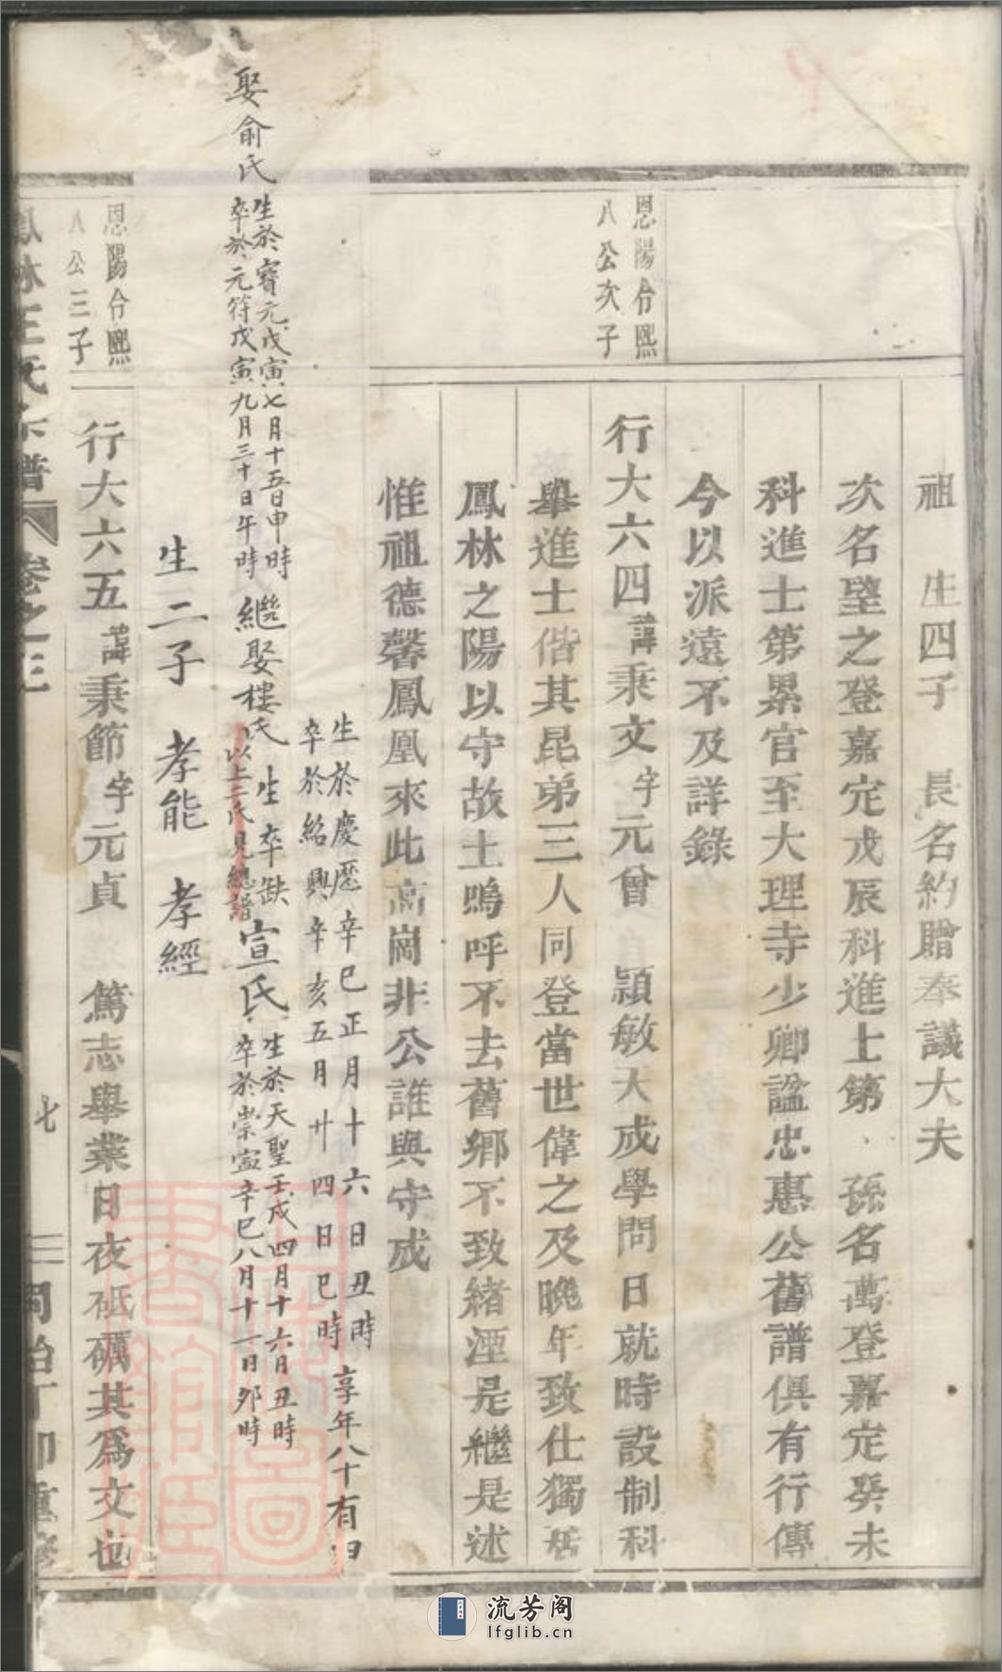 祖 生四子 長名約贈奉議大夫
次名塈之登嘉定戊辰科進士第 孫名萬登嘉定癸未
科進士第累官至大理寺少卿諡忠惠公舊譜俱有行傳
今以派遠不及詳錄
恩陽令熙
八公次子
行大六四諱秉文字元曾 穎敏大成學問日就時設制科
舉進士偕其昆弟三人同登當世偉之及晚年致仕獨居
鳳林之陽以守故土嗚呼不去舊鄉不致緒湮是繼是述
惟祖德馨鳳凰來此高崗非公誰與守成
生於慶歷辛巳正月十六日丑時
卒於紹興辛亥五月廿四日巳時
享年八十有
娶俞氏
生於寶元戊寅七月十五日申時
卒於元符戊寅九月三十日午時
繼娶樓氏
生卒缺
以上二氏見總譜
宣氏
生於天聖壬戌四月十六日丑時
卒於崇寧辛巳八月十一日卯時
生二子 孝能 孝經
恩陽令熙
八公三子
行大六五諱秉節字元貞 篤志舉業日夜砥礪其為文也
鳳林王氏宗譜 卷之三
七
同治丁卯重修
流芳阁
lfglib.cn